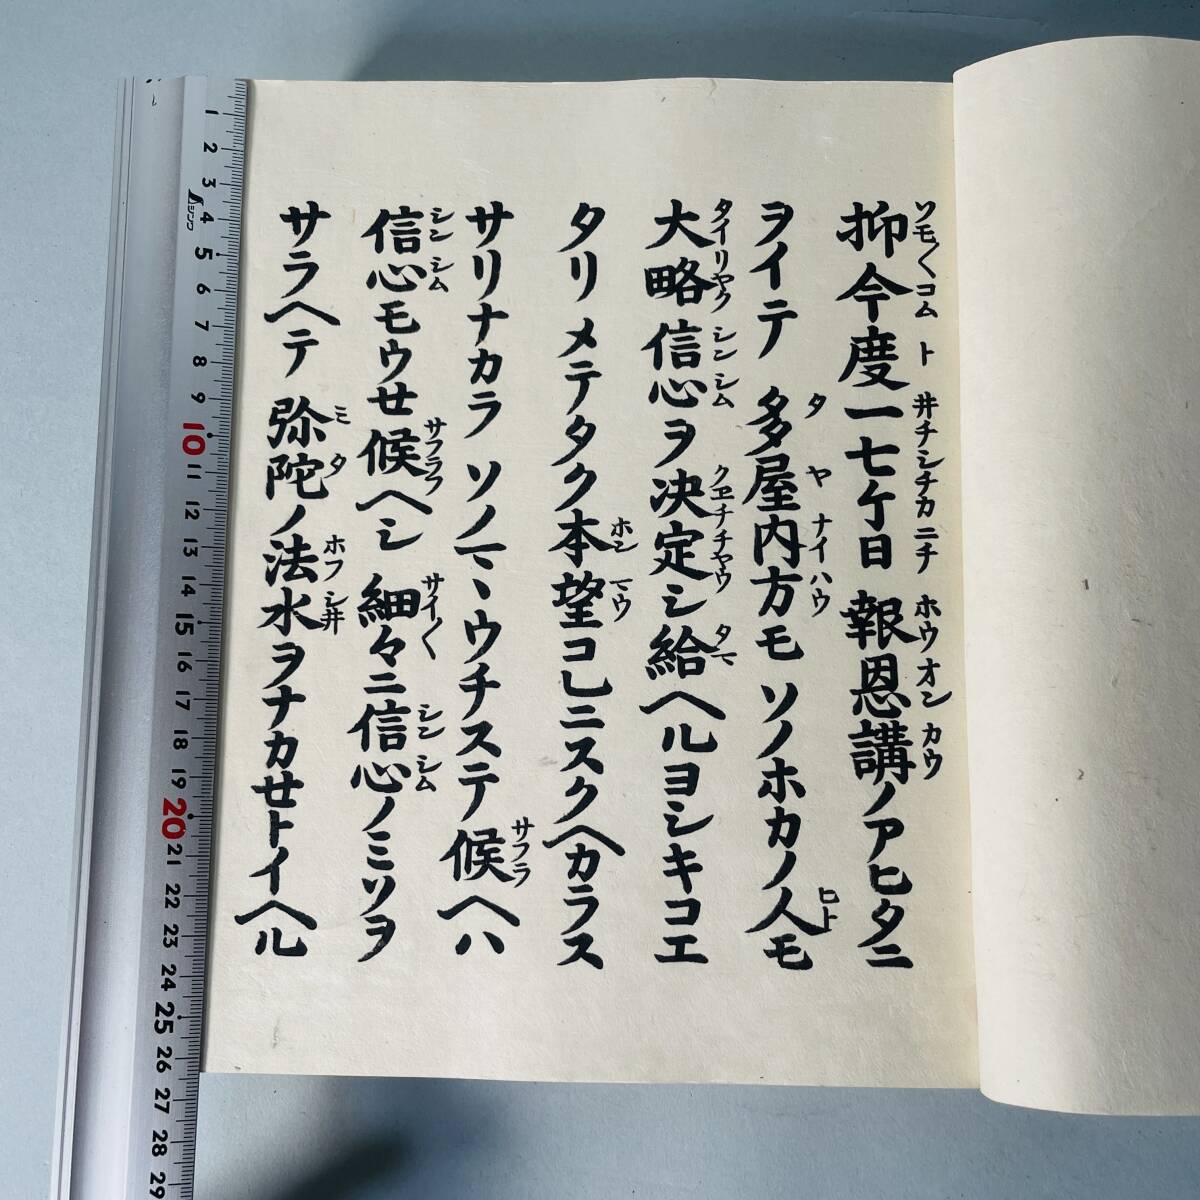 抑今度一七ケ日報恩講ノアヒタニ
ソモ〳〵コム ト 井チシチカニチ ホウオンカウ
ヲイテ多屋内方モソノホカノ人モ
タヤナイハウ ヒト
大略信心ヲ決定シ給ヘルヨシキコエ
タイリヤクシンシム クヱチチヤウ タマ
タリメテタク本望コレニスクヘカラス
ホンマウ
サリナカラソノマヽウチステ候ヘハ
サフラ
信心モウせ候ヘシ細々ニ信心ノミソヲ
シンシム サフラフ サイ〳〵 シンシム
サラヘテ弥陀ノ法水ヲナカせトイヘル
ミタ ホフシ井
シンワ
1
2
3
4
5
6
7
8
9
10
11
12
13
14
15
16
17
18
19
20
21
22
23
24
25
26
27
28
29